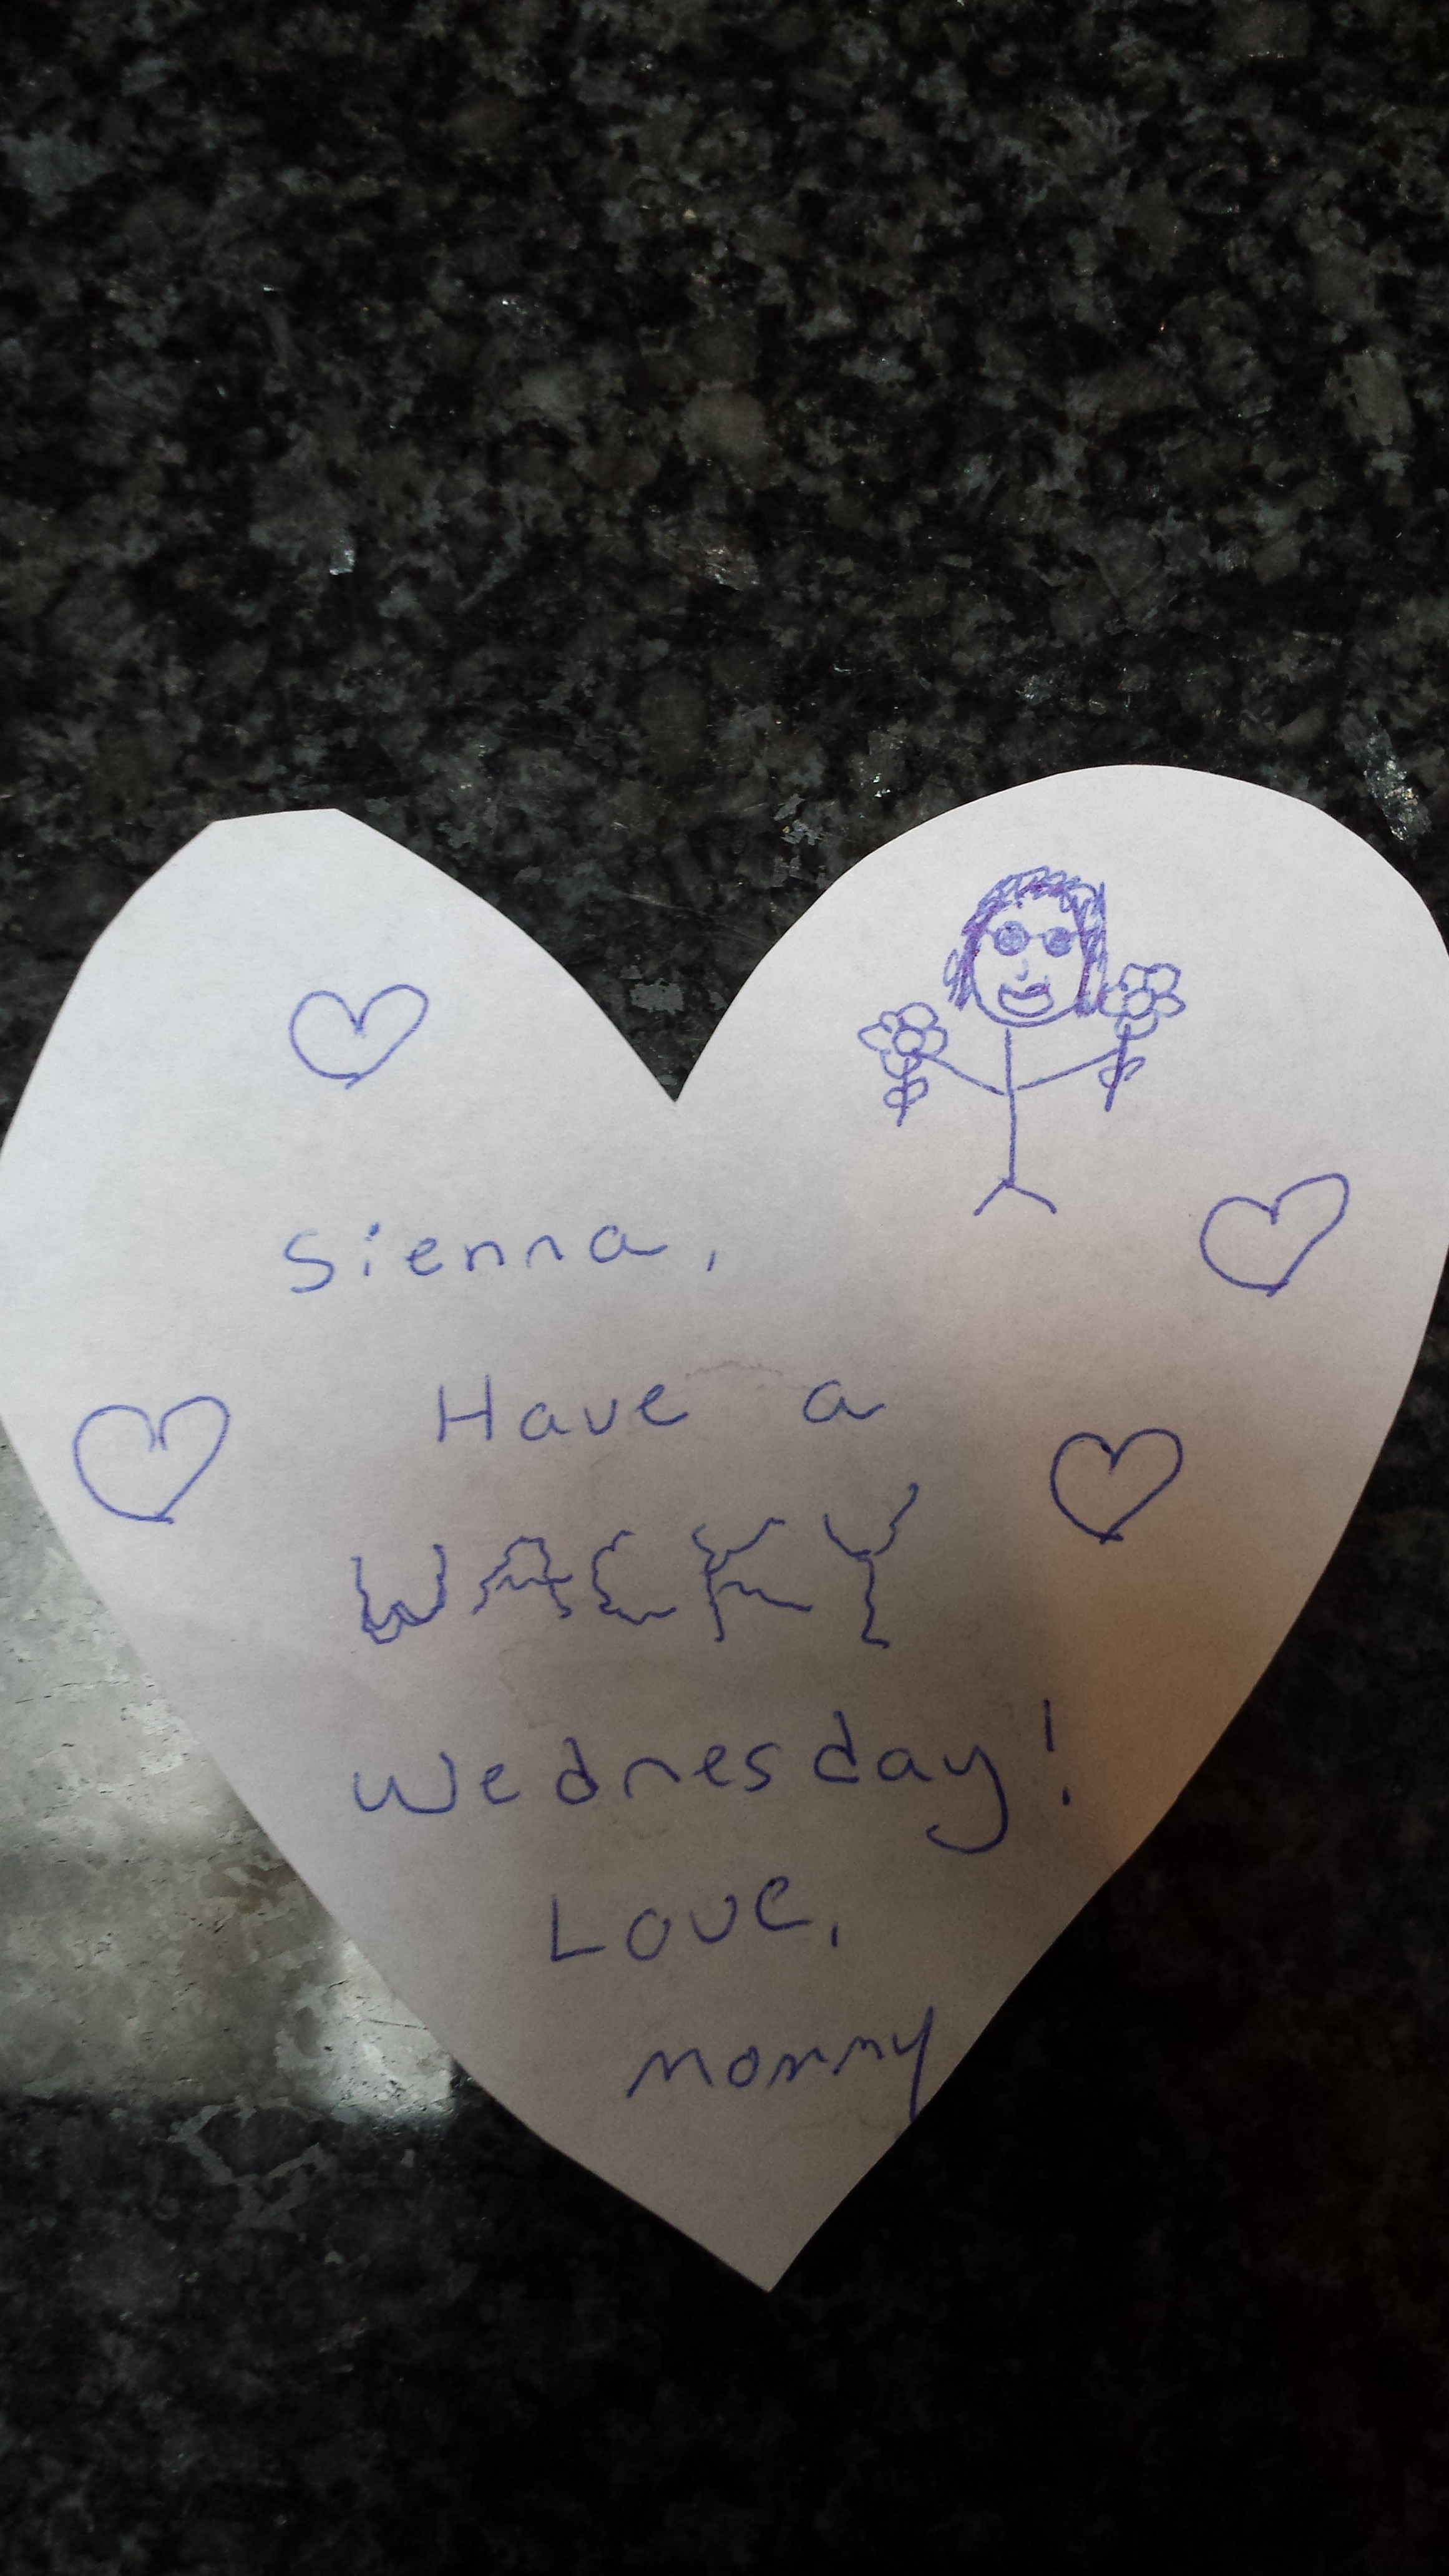 Sienna,
Have a
WACKY
Wednesday!
Love,
Mommy